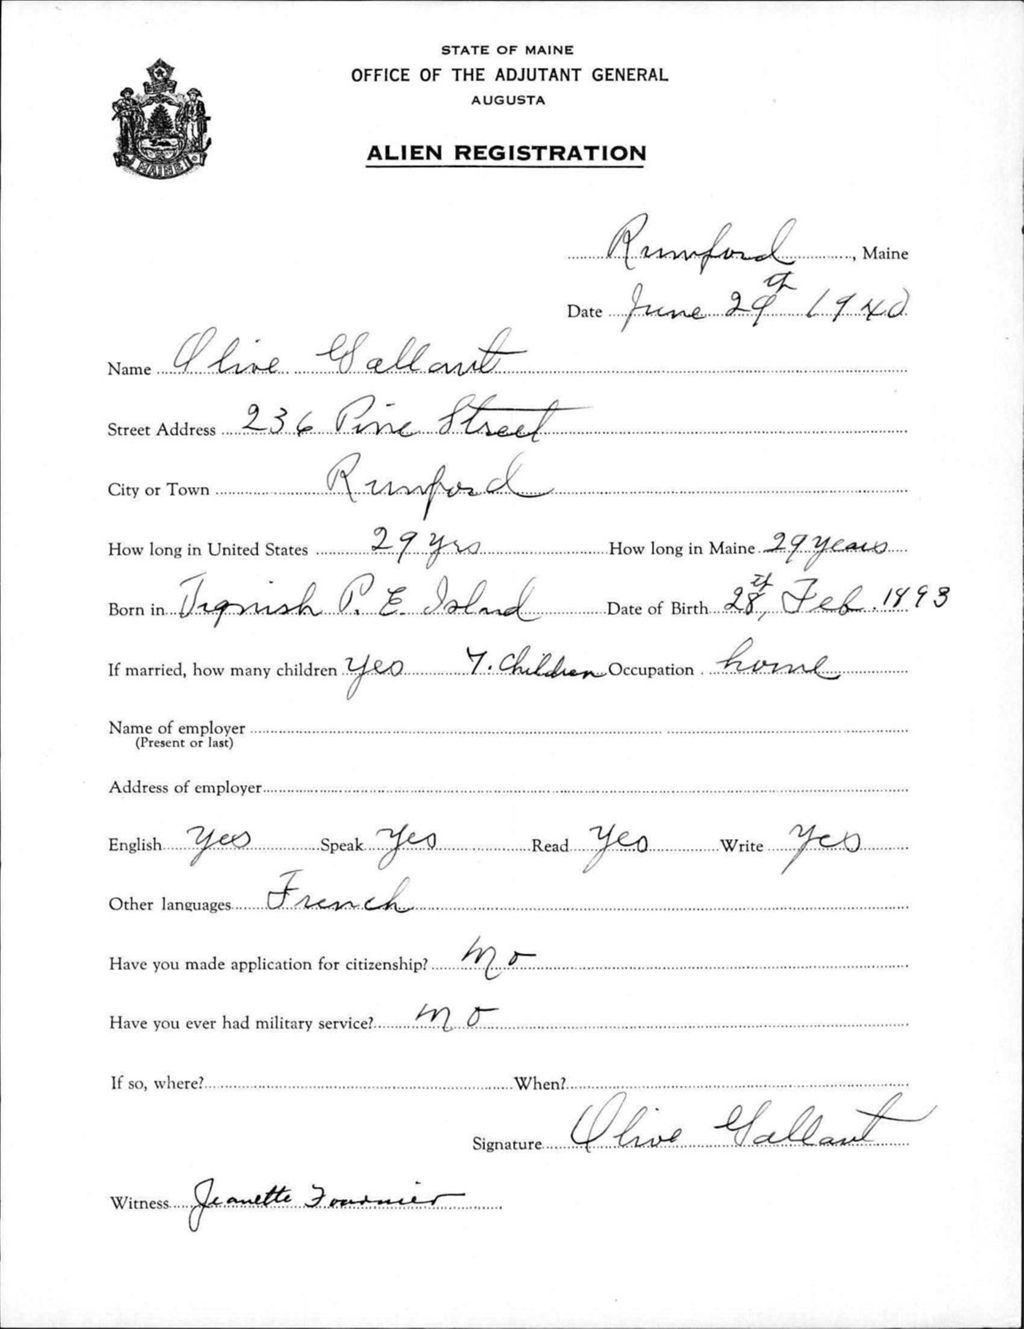 STATE OF MAINE
OFFICE OF THE ADJUTANT GENERAL
AUGUSTA
MAINE
ALIEN REGISTRATION
Rumford, Maine
Date June 29th 1940
Name Olive Gallant
Street Address 236 Pine Street
City or Town Rumford
How long in United States 29 yrs How long in Maine 29 years
Born in Tignish P. E. Islnd Date of Birth 28th, Feb. 1893
If married, how many children yes 7. Children Occupation home
Name of employer
(Present or last)
Address of employer
English Yes Speak Yes Read Yes Write Yes
Other languages French
Have you made application for citizenship? No
Have you ever had military service? No
If so, where? When?
Signature Olive Gallant
Witness Jeanette Fournier